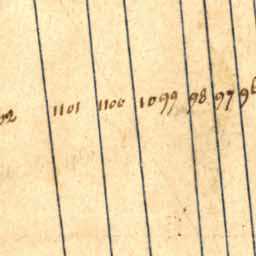 1101 1100 1099 98 97